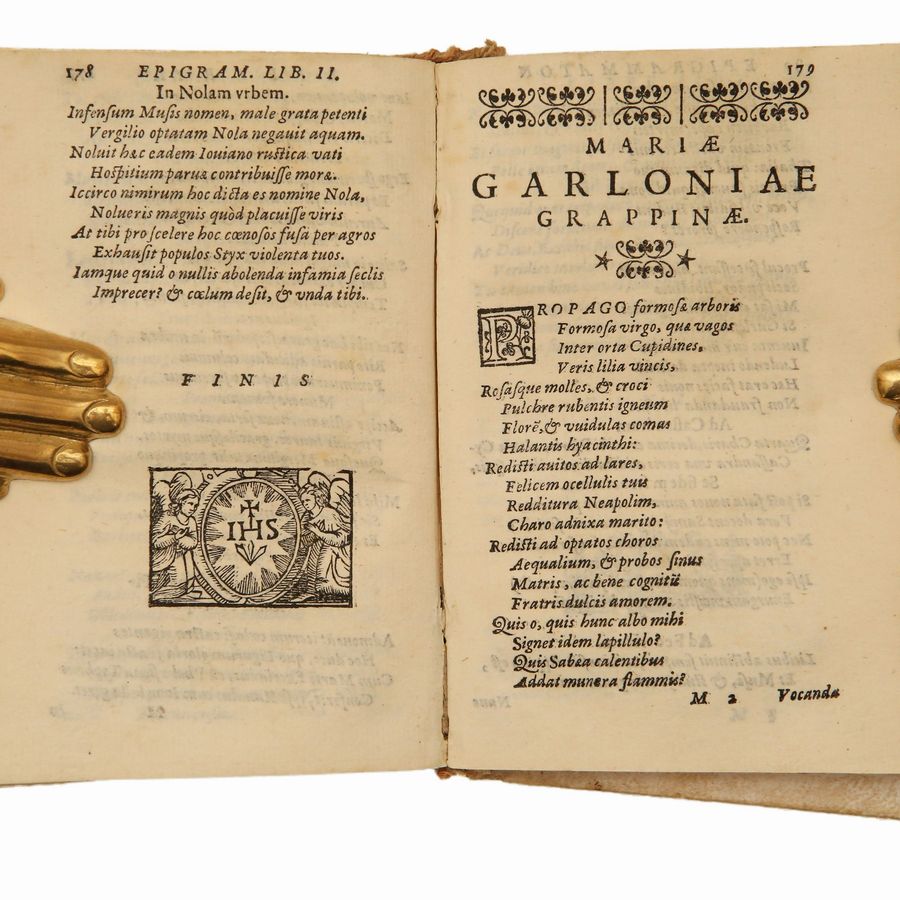 178 EPIGRAM. LIB. II.
In Nolam vrbem.
Infensum Musis nomen, male grata petenti
Vergilio optatam Nola negauit aquam.
Noluit hæc eadem Iouiano rustica vati
Hospitium paruæ contribuisse moræ.
Iccirco nimirum hoc dicta es nomine Nola,
Nolueris magnis quòd placuisse viris
At tibi pro scelere hoc cœnosos fusa per agros
Exhausit populos Styx violenta tuos.
Iamque quid o nullis abolenda infamia seclis
Imprecer? & cœlum desit, & vnda tibi.
FINIS
IHS
179
MARIÆ
GARLONIAE
GRAPPINÆ.
PROPAGO formosæ arboris
Formosa virgo, quæ vagos
Inter orta Cupidines,
Veris lilia vincis,
Rosasque molles, & croci
Pulchre rubentis igneum
Florē, & vuidulas comas
Halantis hyacinthi:
Redisti auitos ad lares,
Felicem ocellulis tuis
Redditura Neapolim,
Charo adnixa marito:
Redisti ad optatos choros
Aequalium, & probos sinus
Matris, ac bene cogniti
Fratris dulcis amorem.
Quis o, quis hunc albo mihi
Signet idem lapillulo?
Quis Sabæa calentibus
Addat munera flammis?
M 2 Vocanda